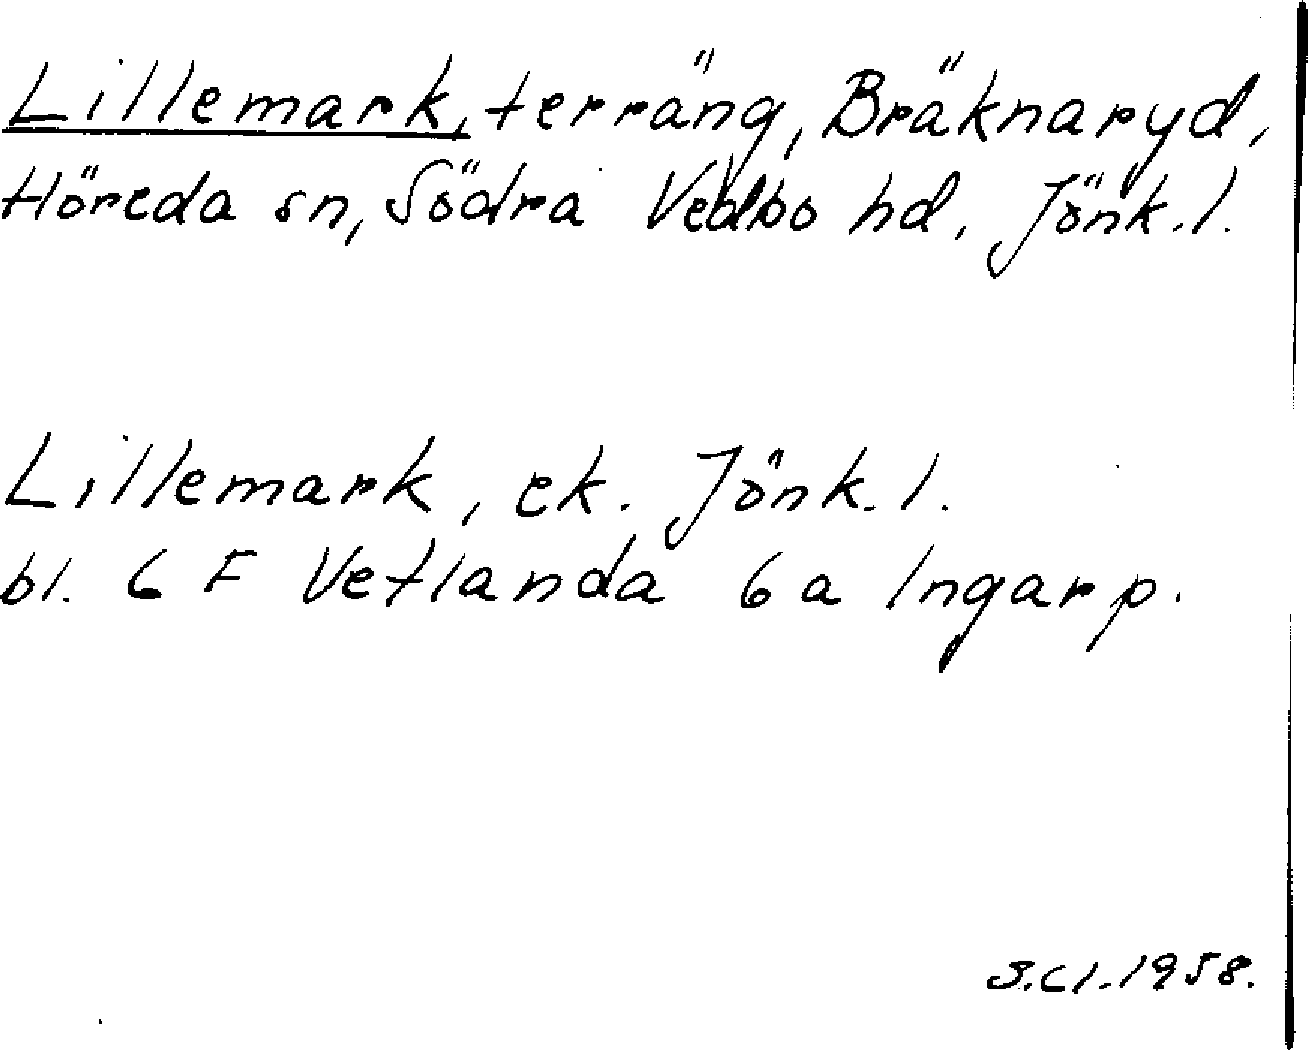 Lillemark, terräng, Bräknaryd,
Höreda sn, Södra Vedbo hd, Jönk.l.
Lillemark, ek. Jönk.l.
bl. 6 F Vetlanda 6 a Ingarp.
S.Cl.1958.